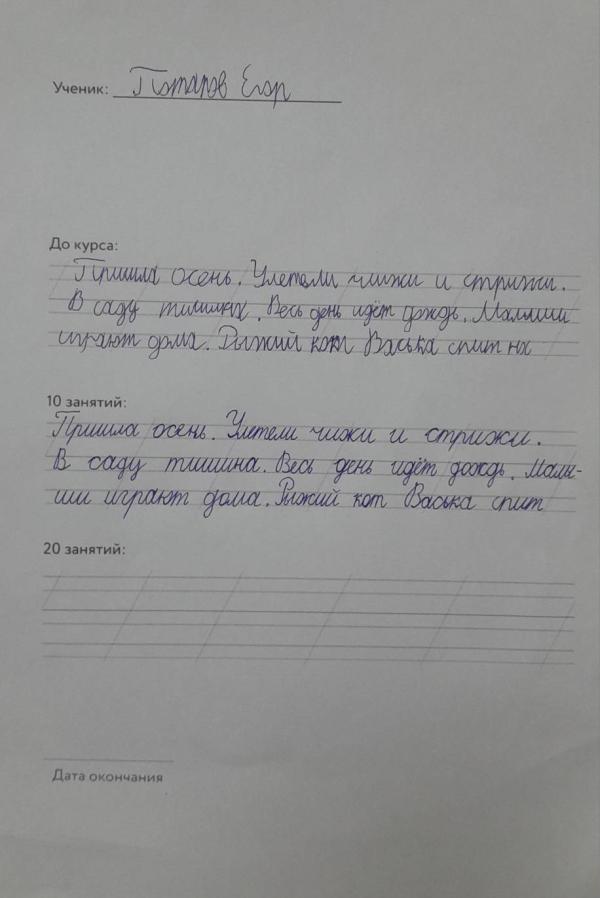 Ученик: Потапов Егор
До курса:
Пришла осень. Улетели чижи и стрижи.
В саду тишина. Весь день идёт дождь. Малыши
играют дома. Рыжий кот Васька спит на
10 занятий:
Пришла осень. Улетели чижи и стрижи.
В саду тишина. Весь день идёт дождь. Малы-
ши играют дома. Рыжий кот Васька спит
20 занятий:
Дата окончания